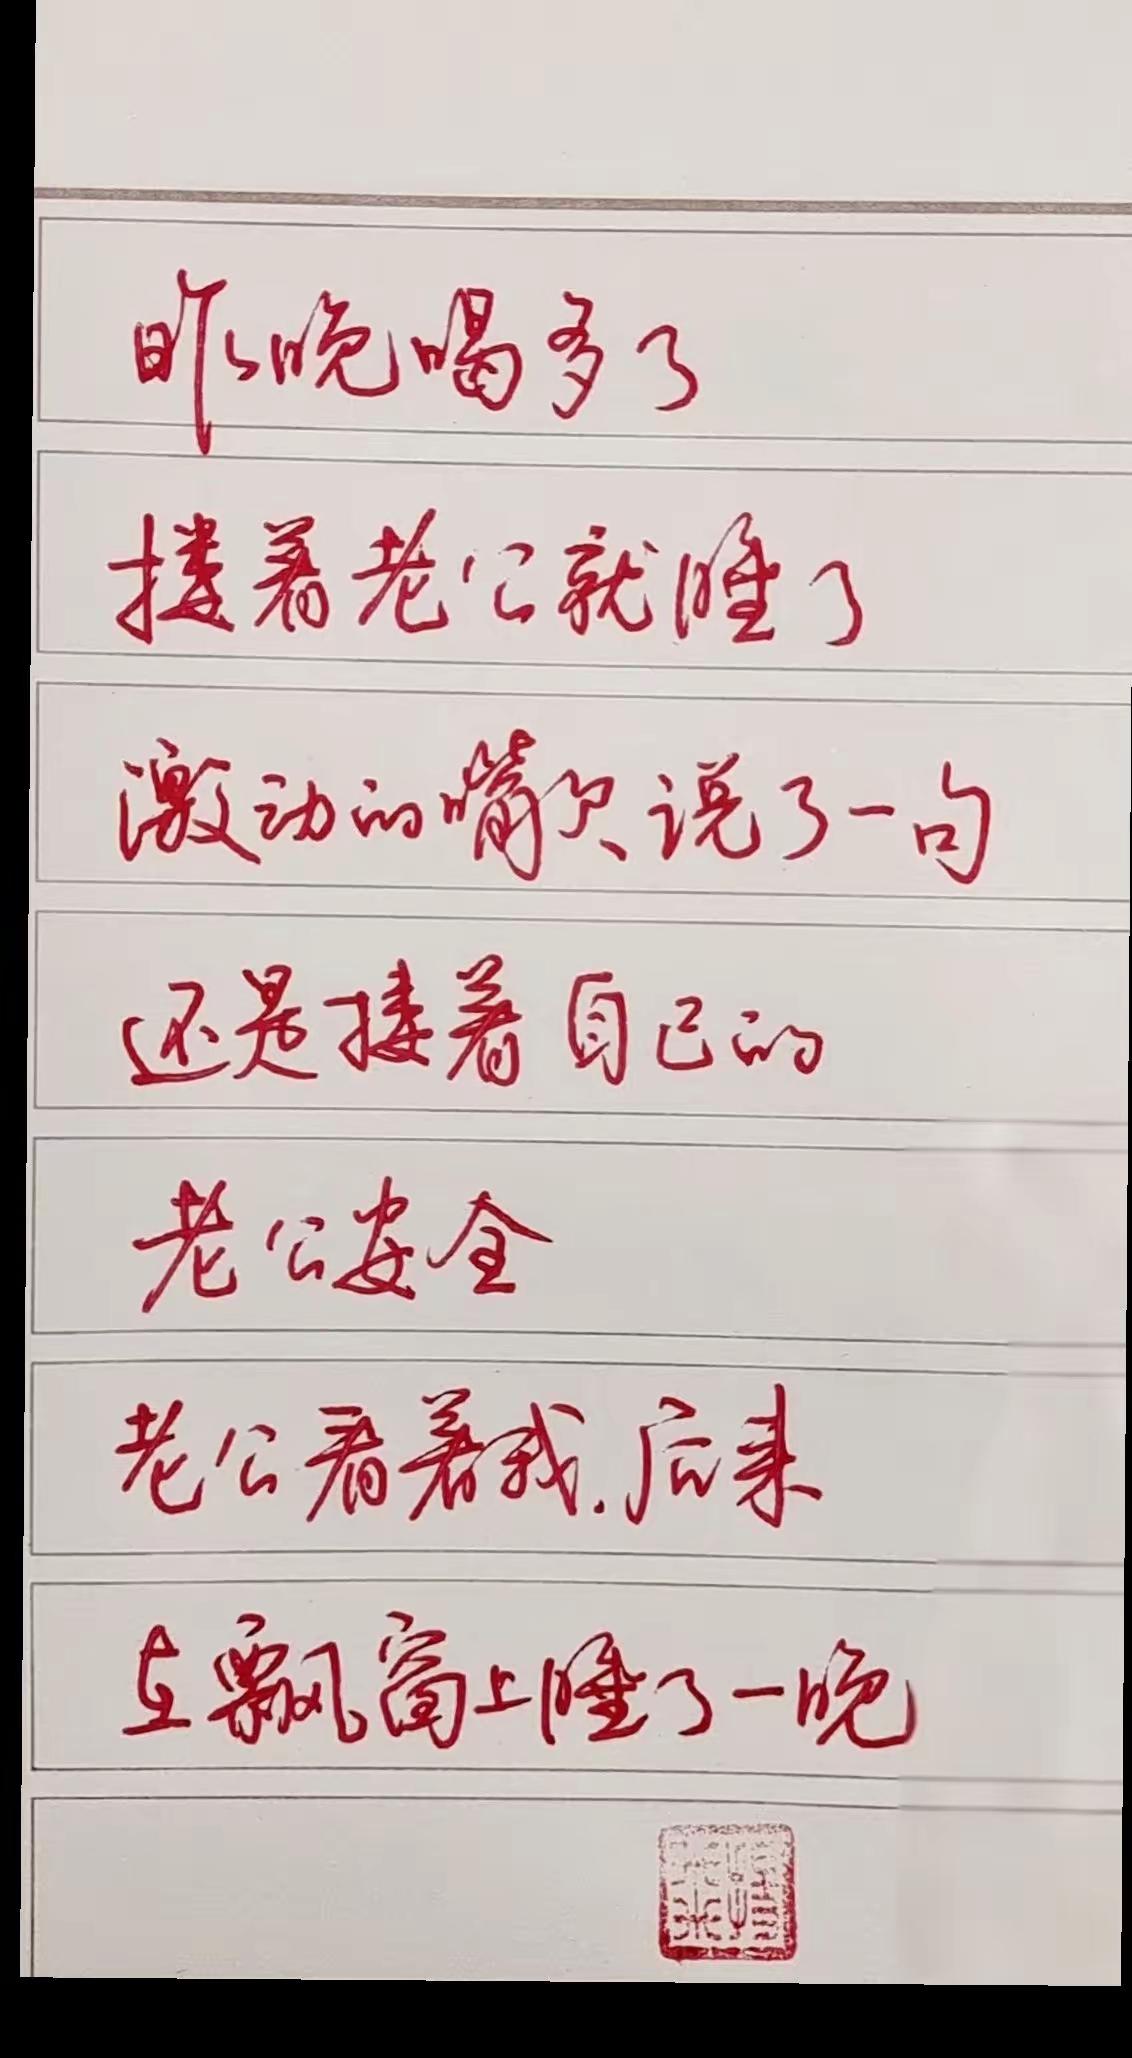 昨晚喝多了
搂着老公就睡了
激动的嘴欠说了一句
还是搂着自己的
老公安全
老公看着我.后来
在飘窗上睡了一晚